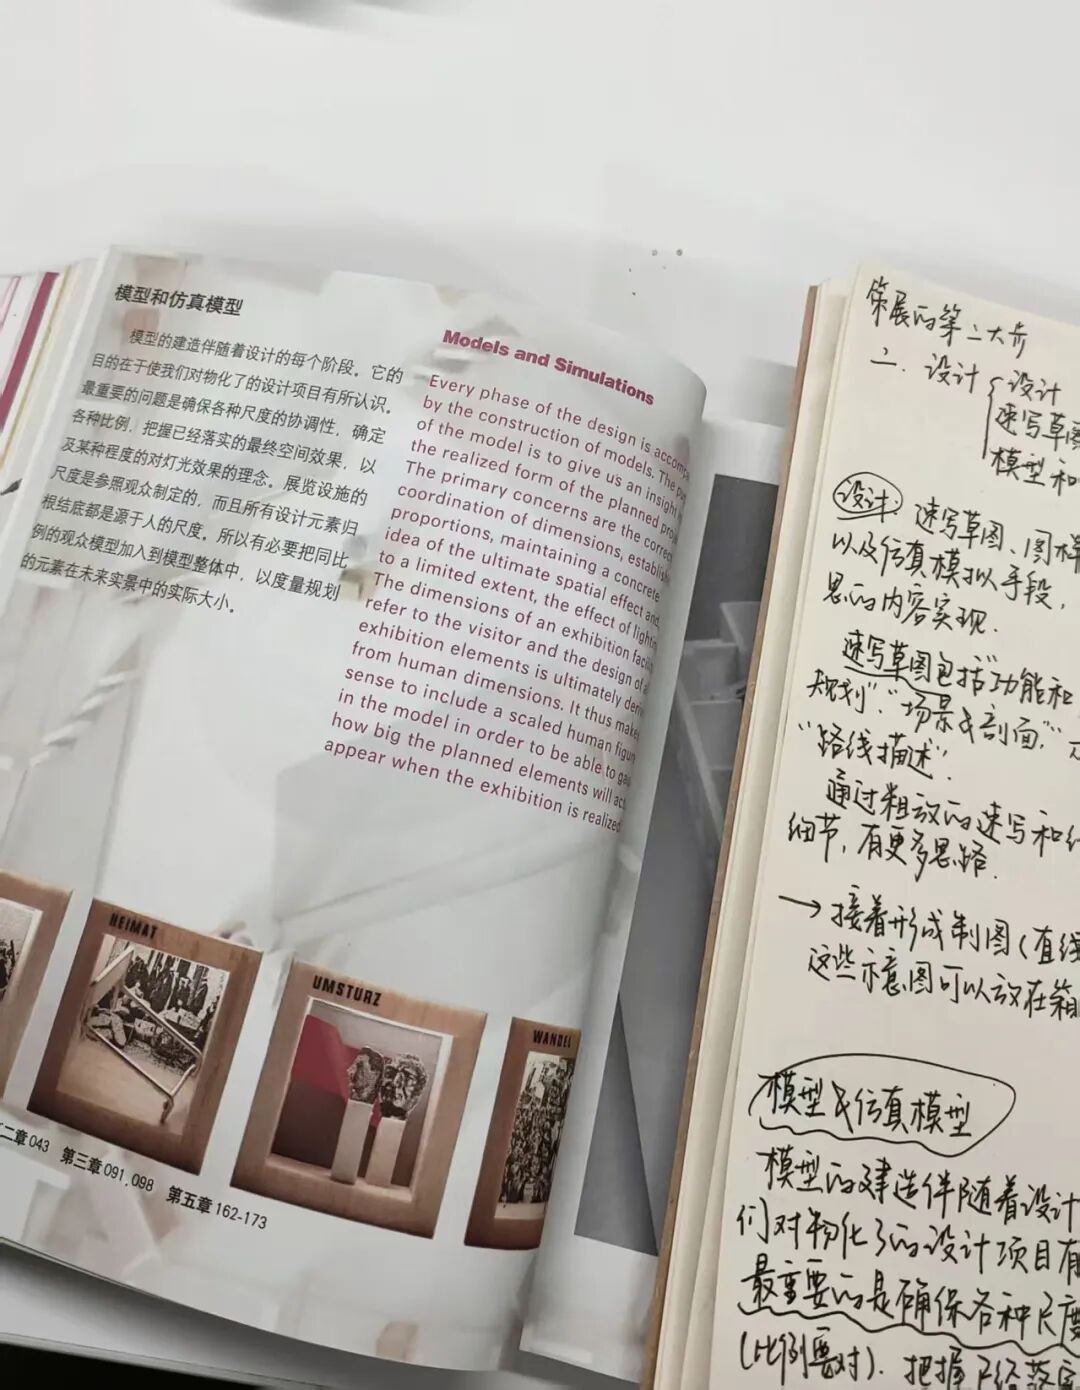 模型和仿真模型
模型的建造伴随着设计的每个阶段。它的
目的在于使我们对物化了的设计项目有所认识。
最重要的问题是确保各种尺度的协调性，确定
各种比例，把握已经落实的最终空间效果，以
及某种程度的对灯光效果的理念。展览设施的
尺度是参照观众制定的，而且所有设计元素归
根结底都是源于人的尺度。所以有必要把同比
例的观众模型加入到模型整体中，以度量规划
的元素在未来实景中的实际大小。
Models and Simulations
Every phase of the design is accompa
by the construction of models. The pur
of the model is to give us an insight in
the realized form of the planned proje
The primary concerns are the correct
coordination of dimensions, establish
proportions, maintaining a concrete
idea of the ultimate spatial effect and,
to a limited extent, the effect of lightin
The dimensions of an exhibition facili
refer to the visitor and the design of a
exhibition elements is ultimately deriv
from human dimensions. It thus makes
sense to include a scaled human figure
in the model in order to be able to gau
how big the planned elements will act
appear when the exhibition is realized
HEIMAT
UMSTURZ
WANDEL
二章 043 第三章 091, 098 第五章 162-173
策展的第二大步
二、设计 设计
速写草图
模型和
设计: 速写草图、图样
以及仿真模拟手段，
思的内容实现.
速写草图包括"功能和
规划"."场景及剖面,"
"路线描述".
通过粗放的速写和
细节, 有更多思路.
→接着形成制图(直线
这些示意图可以放在箱
模型及仿真模型
模型的建造伴随着设计
们对物化了的设计项目有
最重要的是确保各种尺度
(比例要对). 把握已经落实